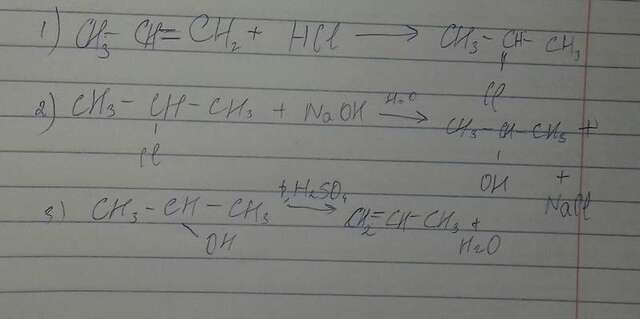 1) CH3 - CH = CH2 + HCl → CH3 - CH - CH3
Cl
2) CH3 - CH - CH3 + NaOH H2O → CH3 - CH - CH3 +
Cl
OH
+
NaCl
3) CH3 - CH - CH3 t, H2SO4 → CH2 = CH - CH3 +
OH
H2O